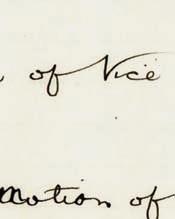 of Vice
Motion of